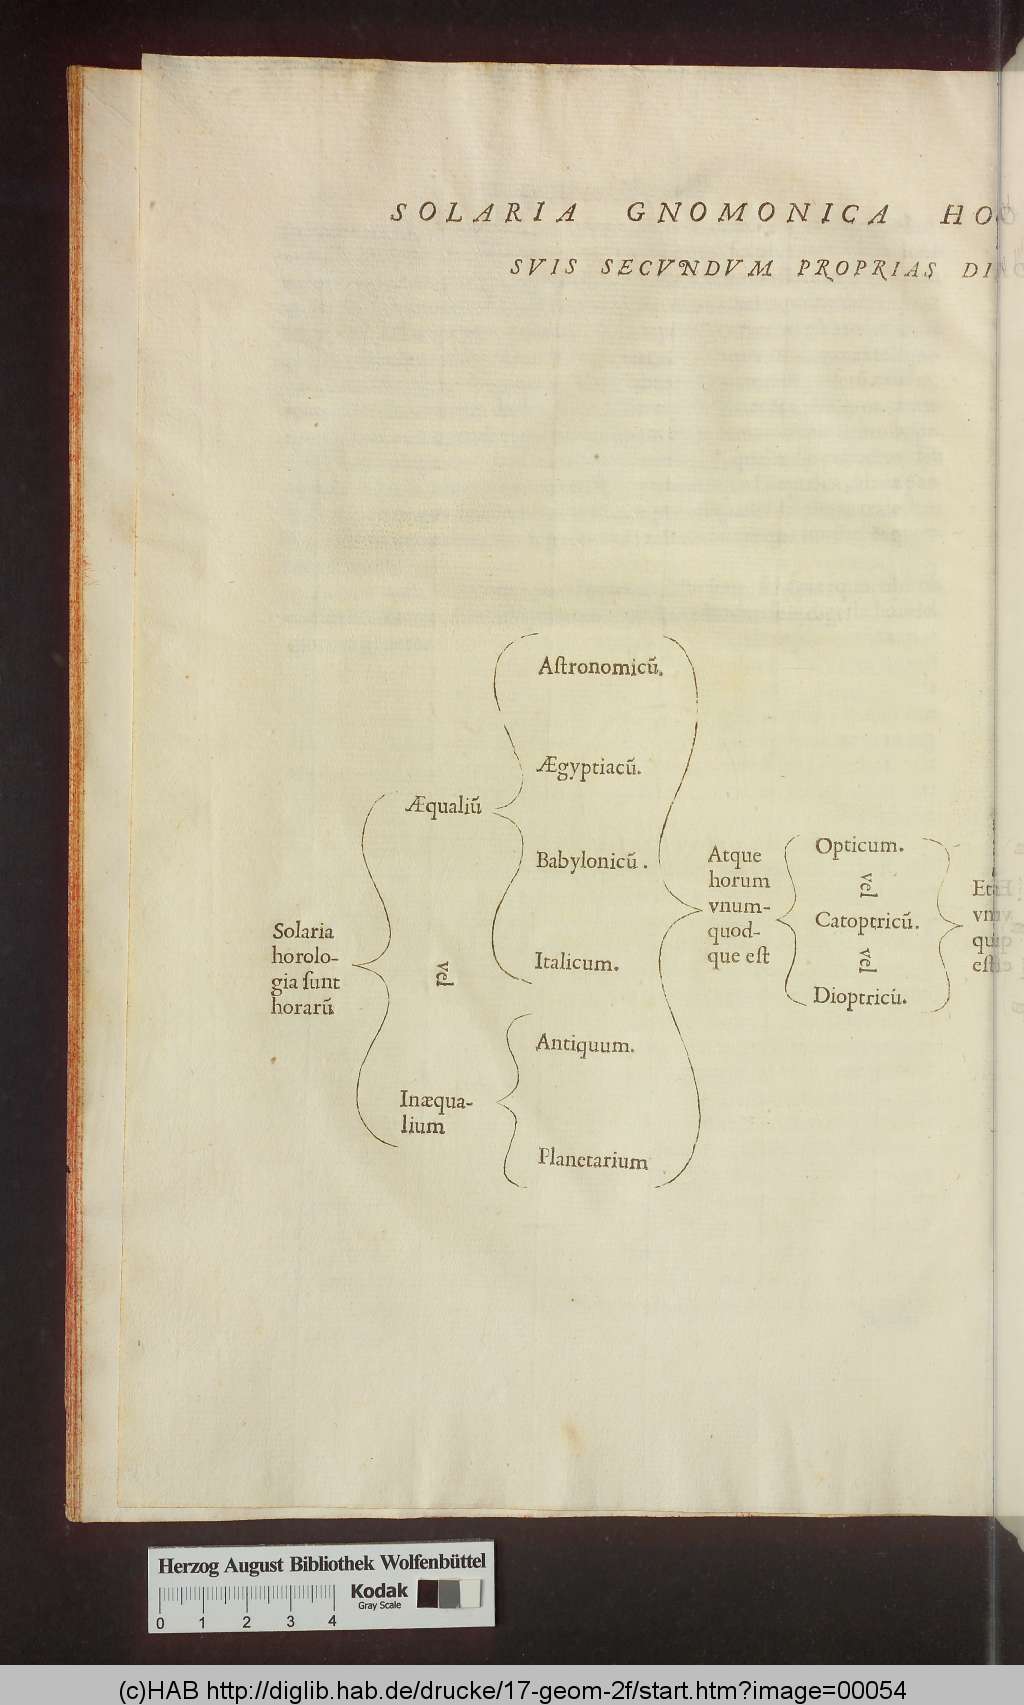 SOLARIA GNOMONICA
SVIS SECVNDVM PROPRIAS
Solaria
horolo-
gia ſunt
horarũ
Æqualiũ
vel
Inæqua-
lium
Aſtronomicũ.
Ægyptiacũ.
Babylonicũ.
Italicum.
Antiquum.
Planetarium
Atque
horum
vnum-
quod-
que eſt
Opticum.
vel
Catoptricũ.
vel
Dioptricũ.
Herzog August Bibliothek Wolfenbüttel
Kodak
Gray Scale
0 1 2 3 4
(c)HAB http://diglib.hab.de/drucke/17-geom-2f/start.htm?image=00054